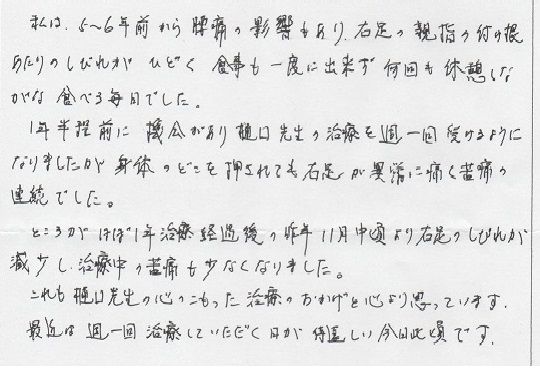 私は、5〜6年前から腰痛の影響もあり、右足の親指の付け根
あたりのしびれが ひどく 食事も一度に出来ず 何回も休憩しな
がな食べる毎日でした。
1年半程前に 機会があり樋口先生の治療を週一回 受けるように
なりましたが 身体のどこを押されても右足が異常に痛く苦痛の
連続でした。
ところがほぼ1年治療経過後の昨年11月中頃より右足のしびれが
減少し、治療中の苦痛も少なくなりました。
これも樋口先生の心のこもった治療のおかげと心より思っています。
最近は 週一回 治療していただく日が 待遠しい今日此頃です。